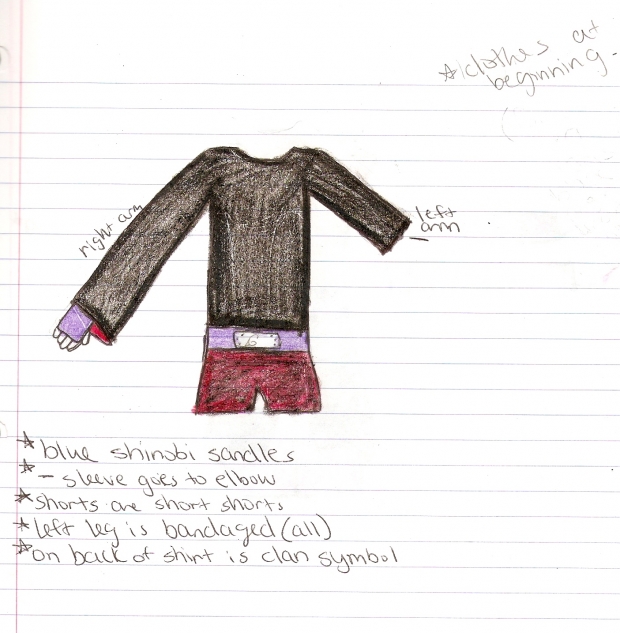 ☆clothes at
beginning.
right arm
left
arm
☆blue shinobi sandles
☆- sleeve goes to elbow
☆shorts are short shorts
☆left leg is bandaged (all)
☆on back of shirt is clan symbol